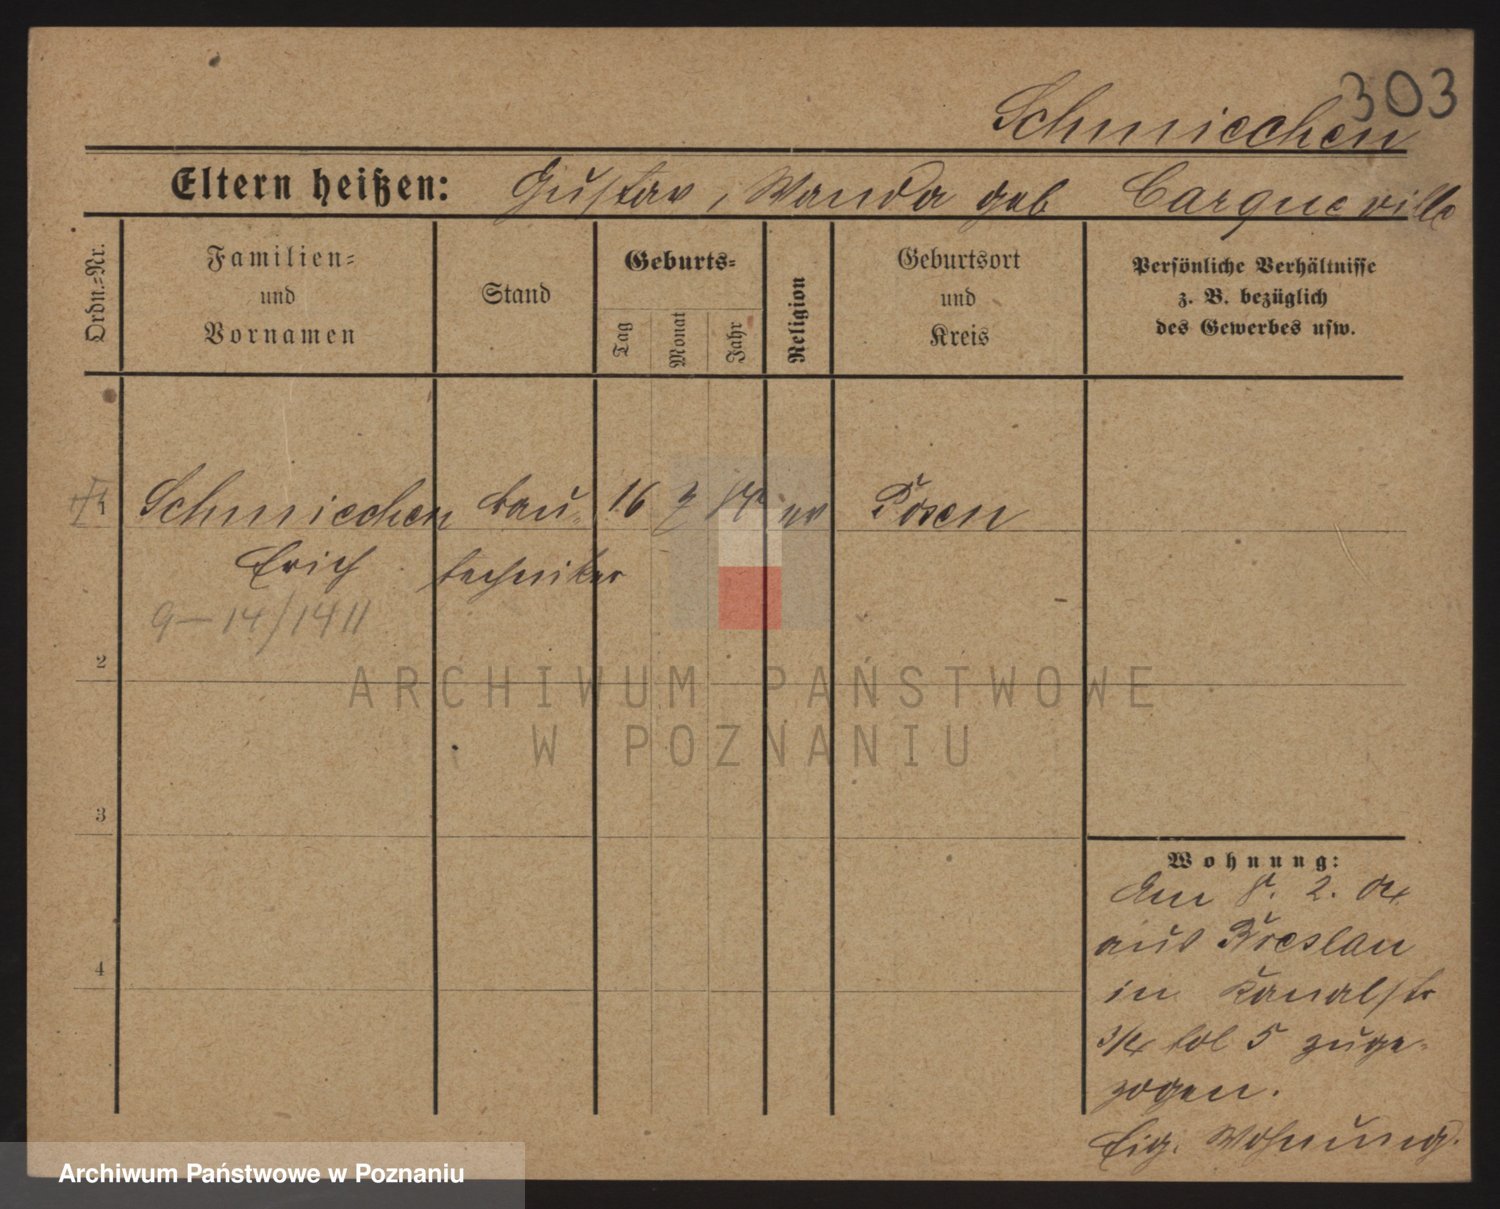 303
Schmiechen
Eltern heißen: Gustav, Wanda geb Carqueville
Ordn.-Nr.
Familien-
und
Vornamen
Stand
Geburts-
Tag
Monat
Jahr
Religion
Geburtsort
und
Kreis
Persönliche Verhältnisse
z. B. bezüglich
des Gewerbes usw.
1 Schmiechen Bau- 16 ev Posen
Erich techniker
9-14/1411
2
3
4
Wohnung:
Am 8. 2. 04
aus Breslau
in Kanalstr
3/4 bol 5 zuge-
zogen.
Eig. Wohnung.
ARCHIWUM PAŃSTWOWE
W POZNANIU
Archiwum Państwowe w Poznaniu